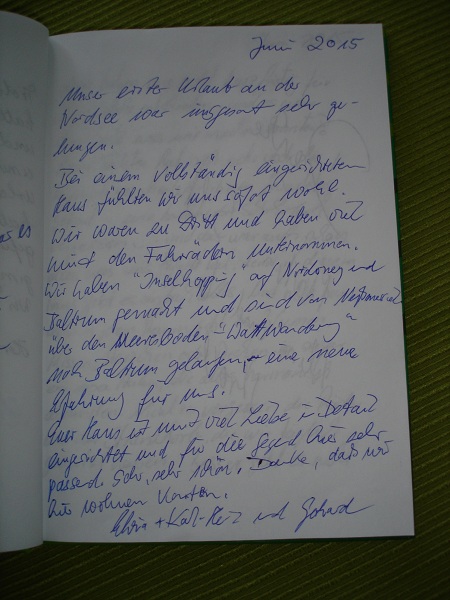 Juni 2015
Unser erster Urlaub an der
Nordsee war insgesamt sehr ge-
lungen.
Bei einem vollständig eingerichteten
Haus fühlten wir uns sofort wohl.
Wir waren zu Dritt und haben viel
mit den Fahrrädern unternommen.
Wir haben "Inselhopping" auf Norderney und
Baltrum gemacht und sind von
über den Meeresboden "Wattwanderung"
nach Baltrum gelaufen, eine neue
Erfahrung für uns.
Euer Haus ist mit viel Liebe im Detail
eingerichtet und für die Gegend hier sehr
passend. Sehr, sehr schön. Danke, daß wir
hier wohnen konnten.
+ Karl-Heinz und Gerhard